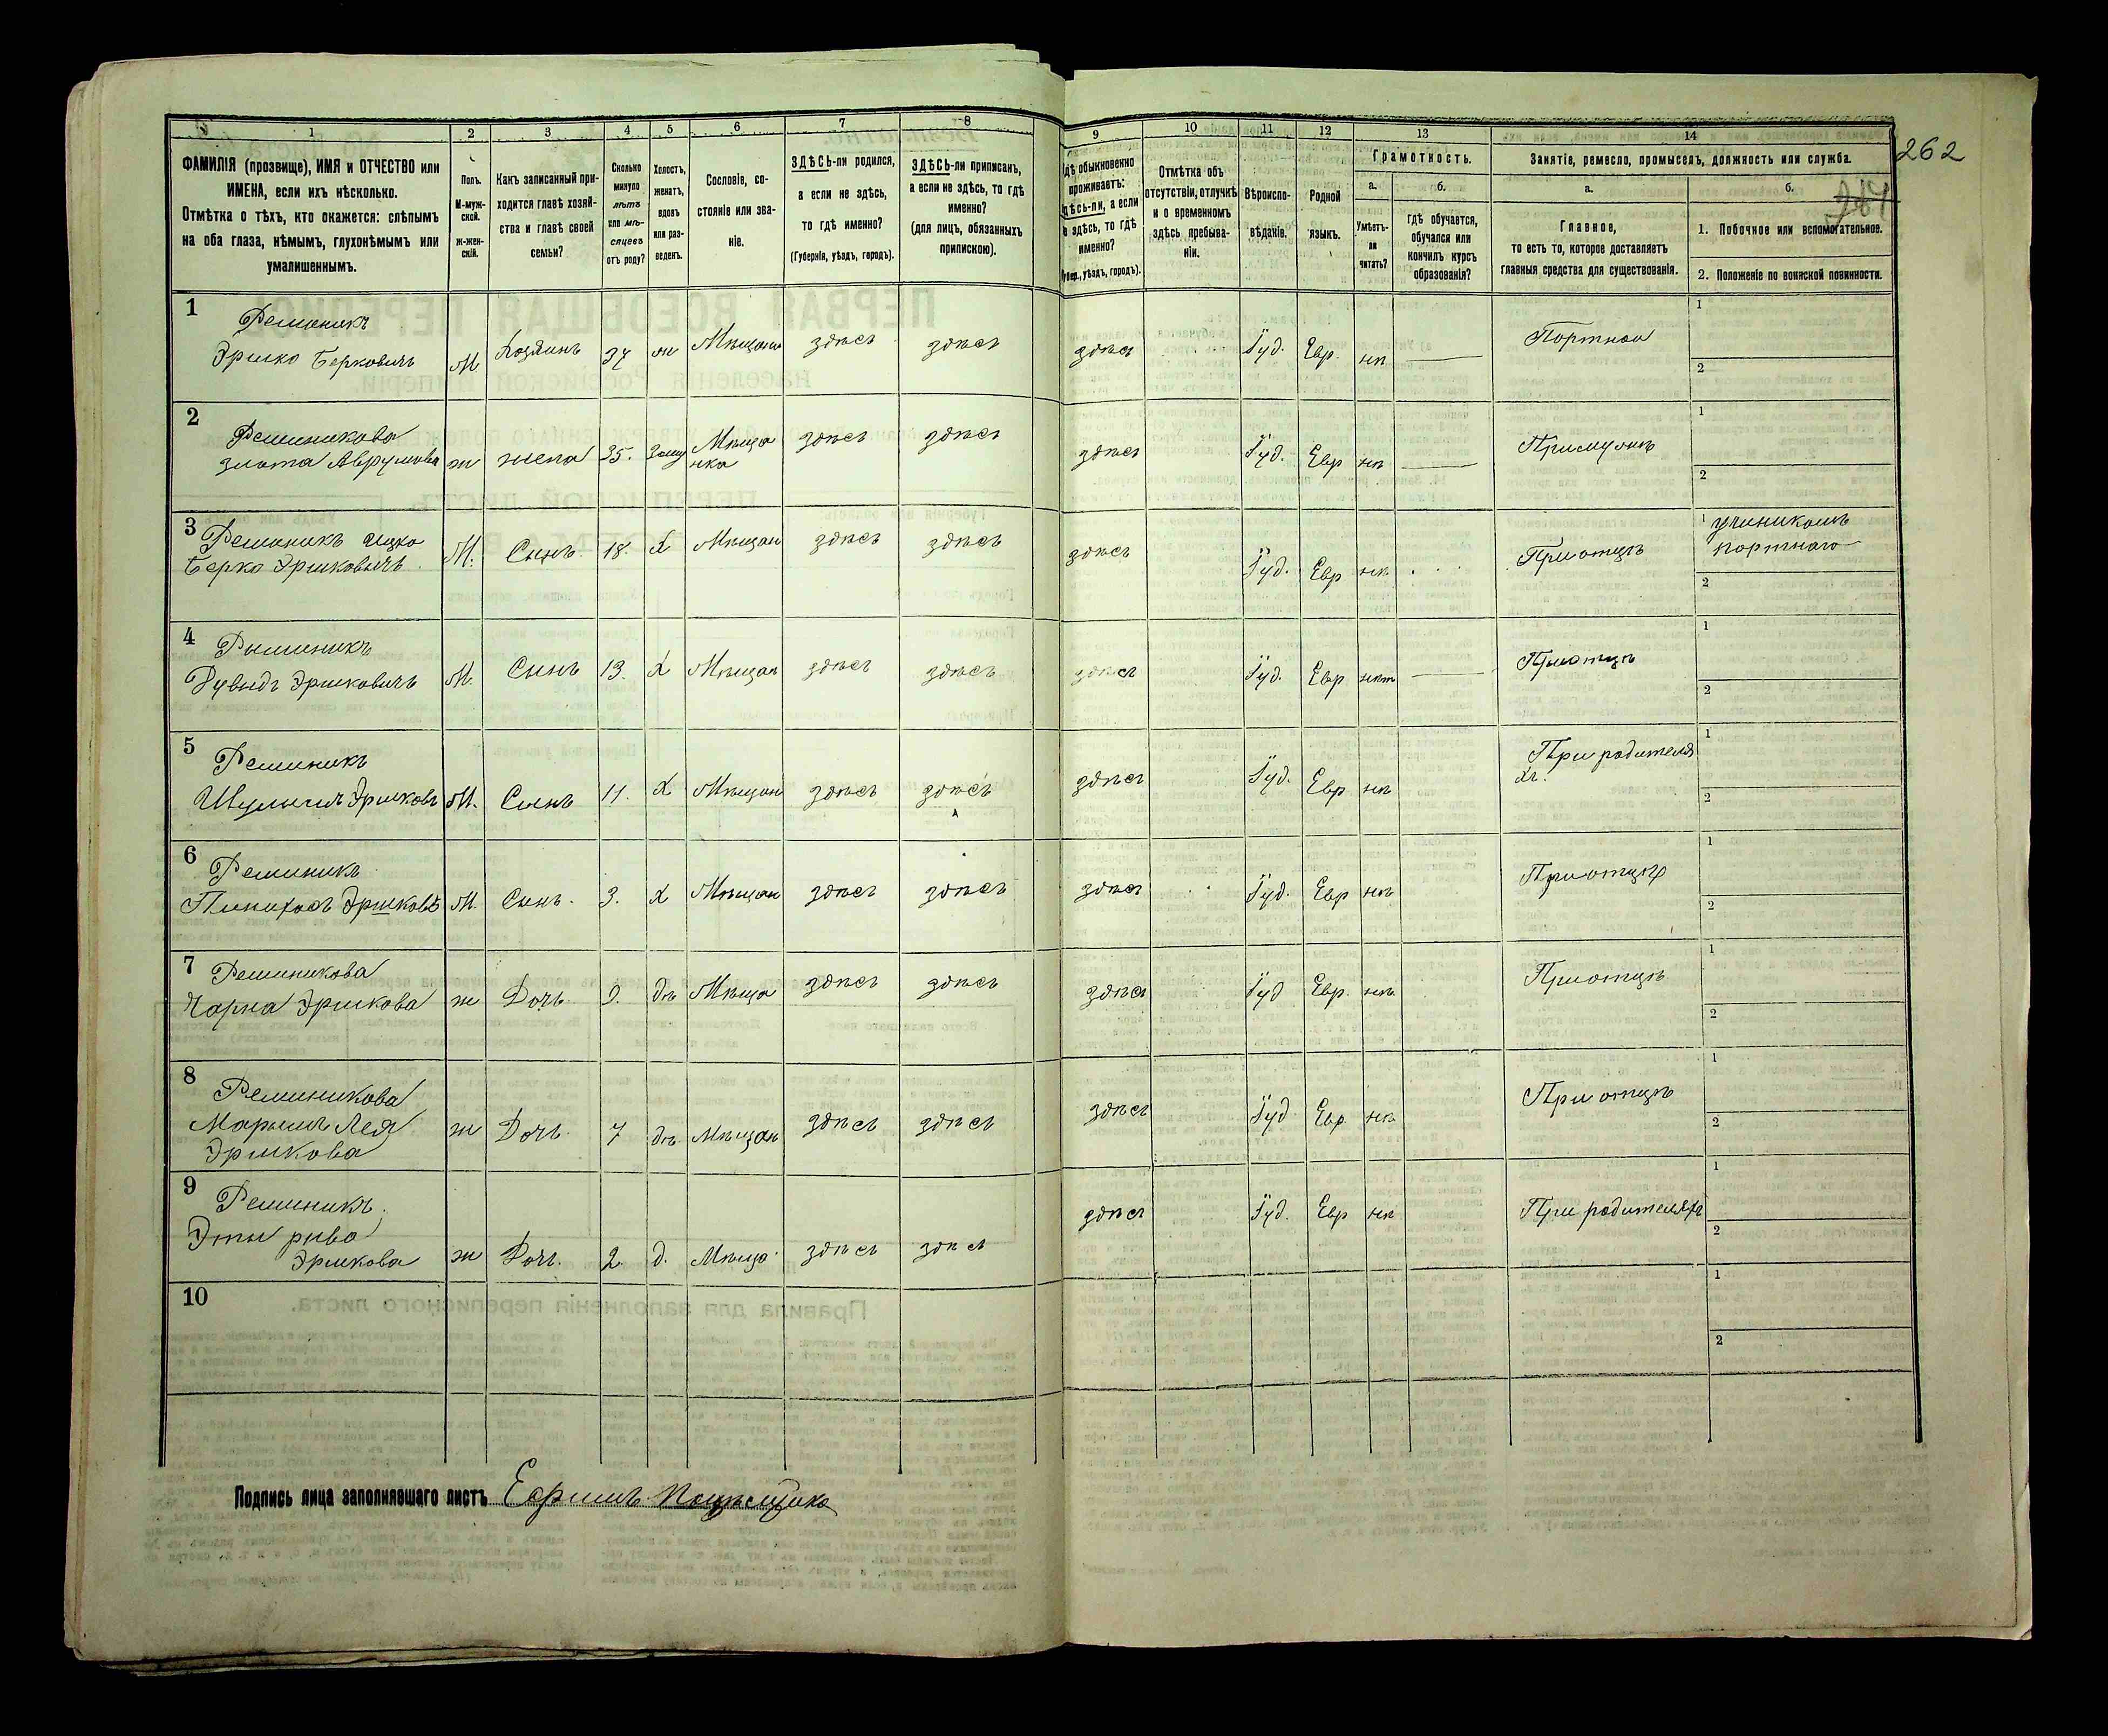 1 2 3 4 5 6 7 8
ФАМИЛІЯ (прозвище), ИМЯ и ОТЧЕСТВО или
ИМЕНА, если ихъ нѣсколько.
Отмѣтка о тѣхъ, кто окажется: слѣпымъ
на оба глаза, нѣмымъ, глухонѣмымъ или
умалишеннымъ.
Полъ.
М-муж-
ской.
ж-жен-
скій.
Какъ записанный при-
ходится главѣ хозяй-
ства и главѣ своей
семьи?
Сколько
минуло
лѣтъ
или мѣ-
сяцевъ
отъ роду?
Холостъ,
женатъ,
вдовъ
или раз-
веденъ.
Сословіе, со-
стояніе или зва-
ніе.
ЗДѢСЬ-ли родился,
а если не здѣсь,
то гдѣ именно?
(Губернія, уѣздъ, городъ).
ЗДѢСЬ-ли приписанъ,
а если не здѣсь, то гдѣ
именно?
(для лицъ, обязанныхъ
припискою).
1
Решеникъ
Эршко Берковичъ М Хозяинъ 37 ж Мѣщани здѣсь здѣсь
2
Решеникова
злота Аврумова ж жена 35. Заму Мѣща
нка здѣсь здѣсь
3 Решеникъ Ицко
Берко Эршковичъ М. Сынъ 18. Х Мѣщан здѣсь здѣсь
4
Решеникъ
Дувыдъ Эршковичъ М. Сынъ 13. Х Мѣщан здѣсь здѣсь
5
Решеникъ
Эршковъ М. Сынъ 11. Х Мѣщан здѣсь здѣсь
6
Решеникъ
Пинхасъ Эршковъ М. Сынъ 3. Х Мѣщан здѣсь здѣсь
7 Решеникова
Чарна Эршкова ж Дочь 9. дѣ Мѣща здѣсь здѣсь
8
Решеникова
Марьям Лея
Эршкова ж Дочь 7 дѣ Мѣщан здѣсь здѣсь
9
Решеникъ
Эты рива
Эршкова ж Дочь. 2. д. Мѣща здѣсь здѣсь
10
Подпись лица заполнявшаго листъ
9 10 11 12 13 14
262
Гдѣ обыкновенно
проживаетъ:
здѣсь-ли, а если
не здѣсь, то гдѣ
именно?
(Губер., уѣздъ, городъ).
Отмѣтка объ
отсутствіи, отлучкѣ
и о временномъ
здѣсь пребыва-
ніи.
Вѣроиспо-
вѣданіе.
Родной
языкъ.
Грамотность.
а. б.
Умѣетъ-
ли
читать?
Гдѣ обучается,
обучался или
кончилъ курсъ
образованія?
Занятіе, ремесло, промыселъ, должность или служба.
а. б.
Главное,
то есть то, которое доставляетъ
главныя средства для существованія.
1. Побочное или вспомогательное.
2. Положеніе по воинской повинности.
здѣсь Іуд. Евр. нѣ Портной 1
2
здѣсь Іуд. Евр нѣ При мужѣ 1
2
здѣсь Іуд. Евр нѣ При отцѣ 1 учиникомъ
портнаго
2
здѣсь Іуд. Евр нѣт При отцѣ 1
2
здѣсь Іуд. Евр нѣ При родителя
хъ. 1
2
здѣсь Іуд. Евр нѣ При отцѣ 1
2
здѣсь Іуд Евр. нѣ При отцѣ 1
2
здѣсь Іуд Евр. нѣ При отцѣ 1
2
здѣсь Іуд. Евр нѣ При родителяхъ 1
2
1
2